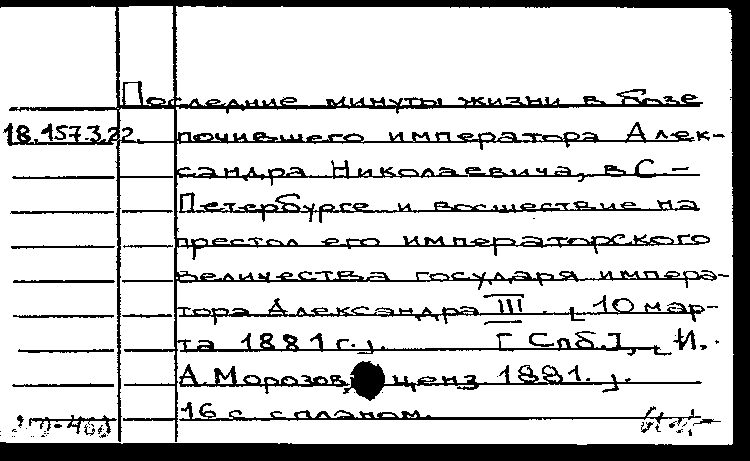 Последние минуты жизни в бозе
18.157.3.22. почившего императора Алек-
сандра Николаевича, в С.-
Петербурге и восшествие на
престол его императорского
величества государя импера-
тора Александра III. [10 мар-
та 1881 г.]. [Спб.], [И.
А. Морозов, ценз. 1881.].
16 с. с планом.